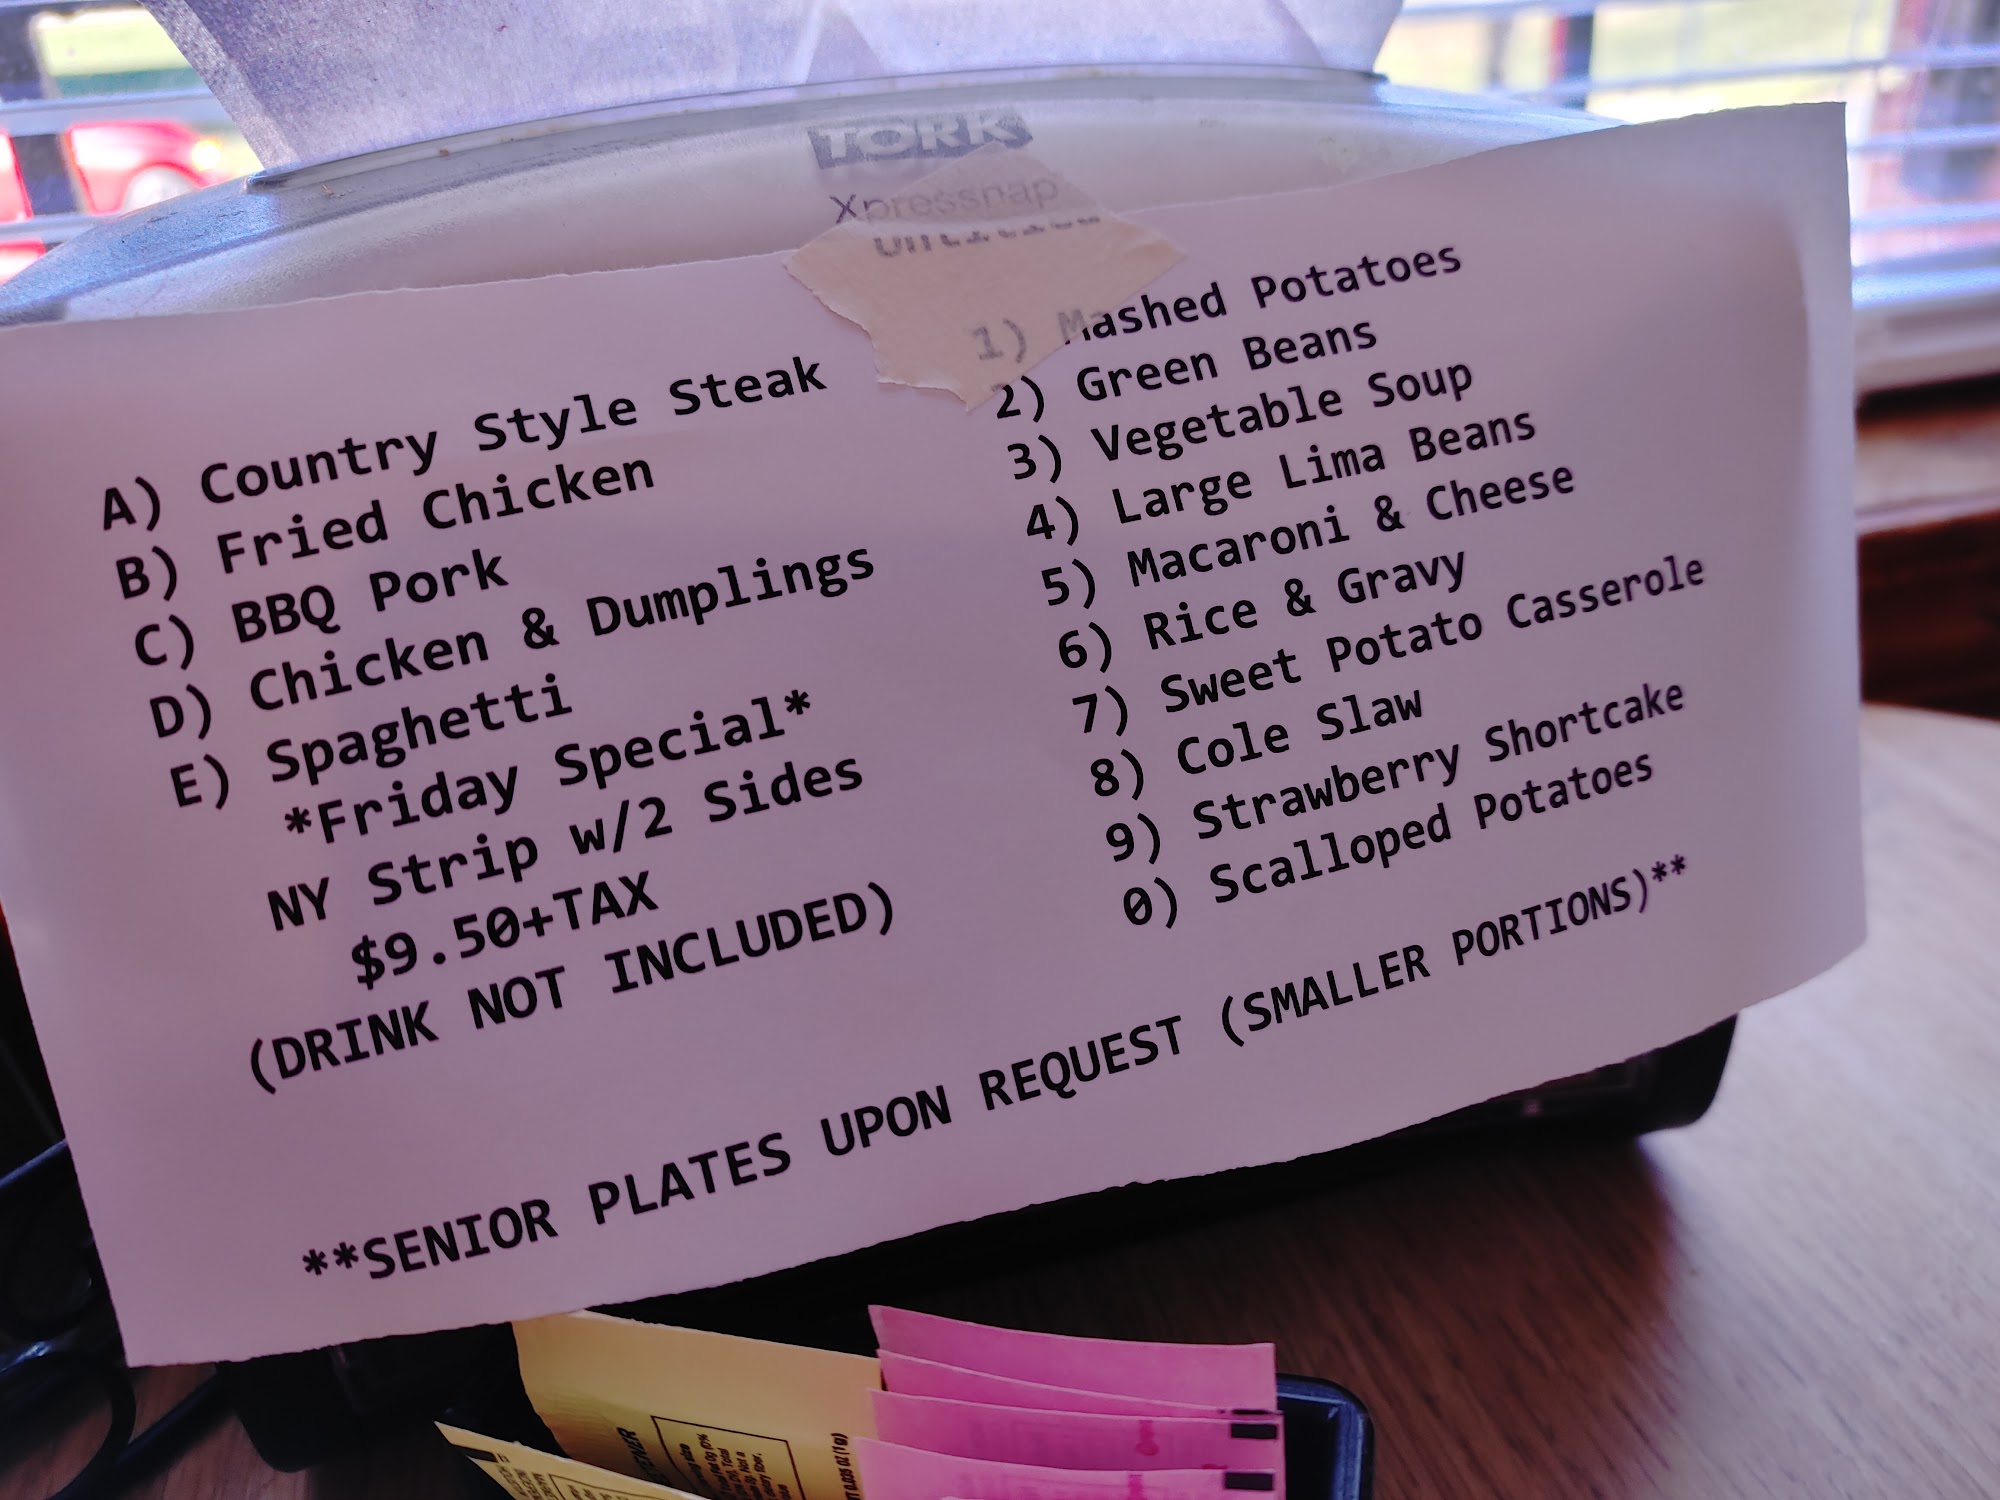 TORK
Xpressnap
A) Country Style Steak
B) Fried Chicken
C) BBQ Pork
D) Chicken & Dumplings
E) Spaghetti
*Friday Special*
NY Strip w/2 Sides
$9.50+TAX
(DRINK NOT INCLUDED)
1) Mashed Potatoes
2) Green Beans
3) Vegetable Soup
4) Large Lima Beans
5) Macaroni & Cheese
6) Rice & Gravy
7) Sweet Potato Casserole
8) Cole Slaw
9) Strawberry Shortcake
0) Scalloped Potatoes
**SENIOR PLATES UPON REQUEST (SMALLER PORTIONS)**